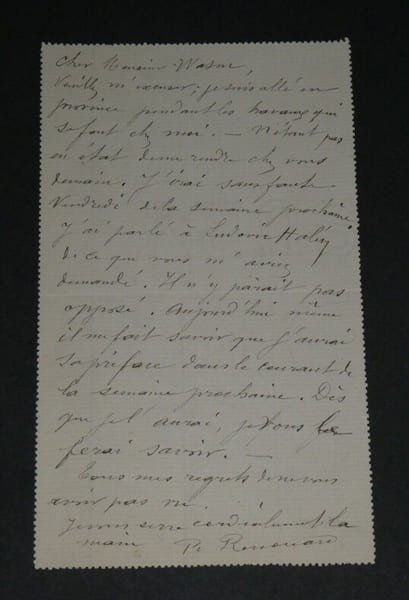 Cher Monsieur Wasne,
Veuillez m'excuser; je suis allé en
province pendant les travaux qui
se font chez moi. — N'étant pas
en état de me rendre chez vous
demain. J'irai sans faute
Vendredi de la semaine prochaine
J'ai parlé à Ludovic Halévy
de ce que vous m'aviez
demandé. Il n'y paraît pas
opposé. Aujourd'hui même
il me fait savoir que j'aurai
sa préface dans le courant de
la semaine prochaine. Dès
que je l'aurai, je vous le
ferai savoir. —
Tous mes regrets de ne vous
avoir pas vu.
Je vous serre cordialement la
main P. Renouard